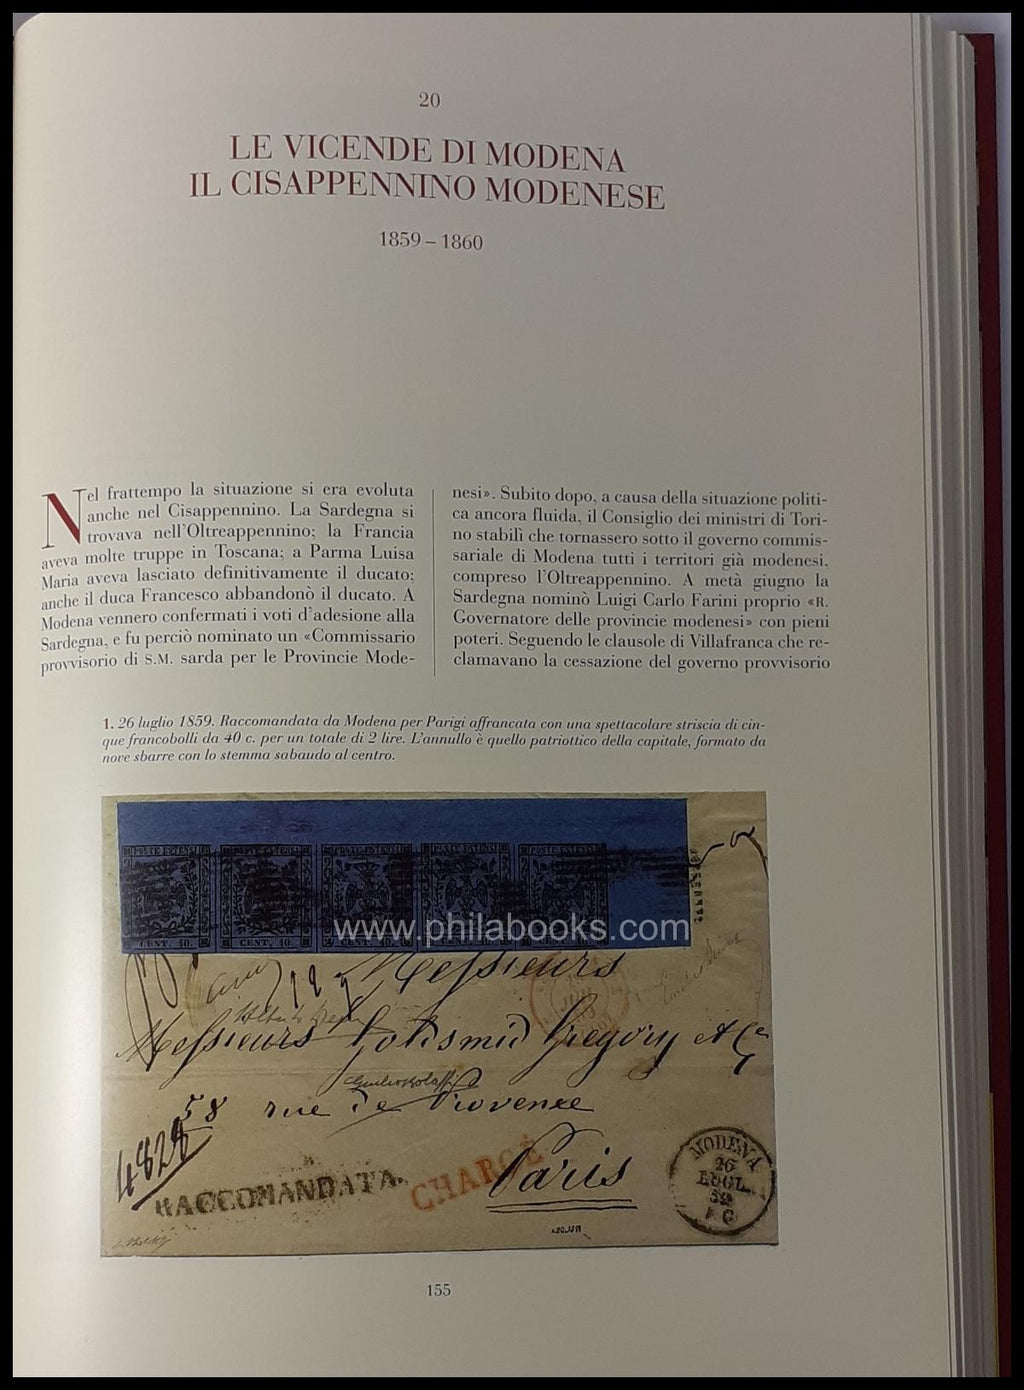 20
LE VICENDE DI MODENA
IL CISAPPENNINO MODENESE
1859 – 1860
Nel frattempo la situazione si era evoluta
anche nel Cisappennino. La Sardegna si
trovava nell'Oltreappennino; la Francia
aveva molte truppe in Toscana; a Parma Luisa
Maria aveva lasciato definitivamente il ducato;
anche il duca Francesco abbandonò il ducato. A
Modena vennero confermati i voti d'adesione alla
Sardegna, e fu perciò nominato un «Commissario
provvisorio di S.M. sarda per le Provincie Mode-
nesi». Subito dopo, a causa della situazione politi-
ca ancora fluida, il Consiglio dei ministri di Tori-
no stabilì che tornassero sotto il governo commis-
sariale di Modena tutti i territori già modenesi,
compreso l'Oltreappennino. A metà giugno la
Sardegna nominò Luigi Carlo Farini proprio «R.
Governatore delle provincie modenesi» con pieni
poteri. Seguendo le clausole di Villafranca che re-
clamavano la cessazione del governo provvisorio
1. 26 luglio 1859. Raccomandata da Modena per Parigi affrancata con una spettacolare striscia di cin-
que francobolli da 40 c. per un totale di 2 lire. L'annullo è quello patriottico della capitale, formato da
nove sbarre con lo stemma sabaudo al centro.
POSTE ESTENSI POSTE ESTENSI POSTE ESTENSI POSTE ESTENSI POSTE ESTENSI
CENT. 40. CENT. 40.
www.philabooks.com
Messieurs
Messieurs Gregory et Ce
58 rue de Provence
4828
RACCOMANDATA.
CHARGÉ
Paris
MODENA
26
LUGL
59
155